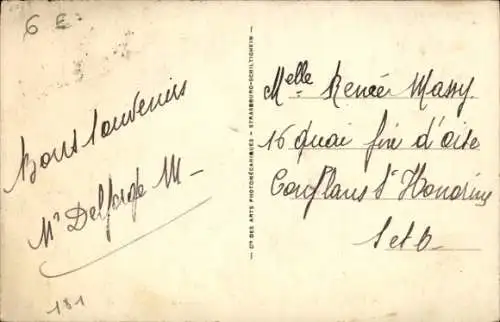 6 E.
Bons Souvenirs
Mr Delforge M
181
Cie DES ARTS PHOTOMÉCANIQUES - STRASBOURG-SCHILTIGHEIM
Melle Renée Massy
16 quai fin d'oise
Conflans St Honorine
S et O